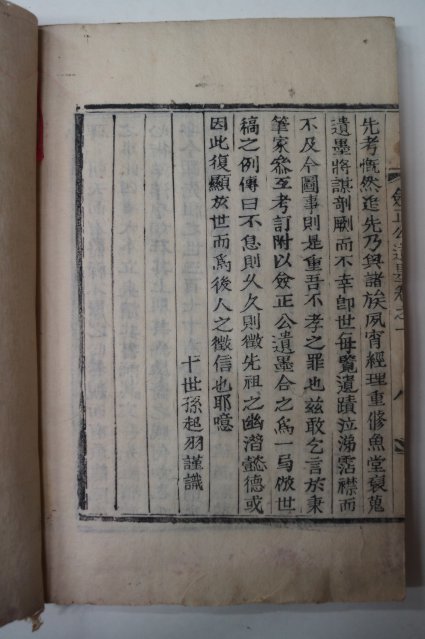 先考慨然追先乃與諸族夙宵經理重修魚堂裒蒐
遺墨將謀剞劂而不幸卽世每覽遺蹟泣涕霑襟而
不及今圖事則是重吾不孝之罪也玆敢乞言於秉
筆家叅互考訂附以僉正公遺墨合之爲一局倣世
稿之例傳曰不息則久久則徵先祖之幽潛懿德或
因此復顯於世而爲後人之徵信也耶噫
十世孫起羽謹識
僉正公遺墨卷之一
八